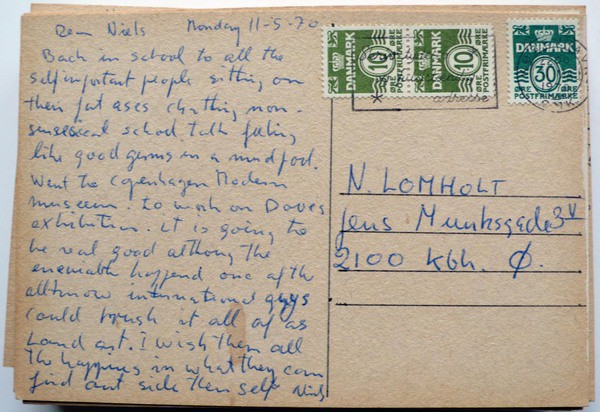 Dear Niels Monday 11-5-70
Back in school to all the
selfimportant people sitting on
their fat ases chatting non
sensesical school talk feeling
like good germs in a mudpool.
Went to Copenhagen Modern
museum. to work on Doves
exhibition. it is going to
be real good althong the
enevitable happend one of the
allknow international guys
could brush it all of as
Land art. I wish them all
the happines in what they can
find out side them self Niels
DANMARK
10
ØRE
POSTFRIMÆRKE
DANMARK
10
ØRE
POSTFRIMÆRKE
DANMARK
30
ØRE
POSTFRIMÆRKE
adresse
N. LOMHOLT
Jens Munksgade 3 V
2100 Kbh. Ø.